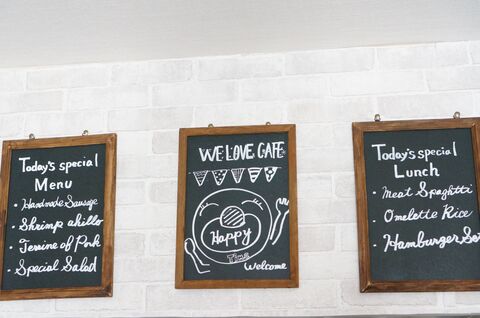 Today's special
Menu
· Handmade Sausage
· Shrimp ahillo
· Terrine of Pork
· Special Salad
WE LOVE CAFE
Happy
Time
Welcome
Today's special
Lunch
· Meat Spaghtti
· Omelette Rice
· Hamburger Set